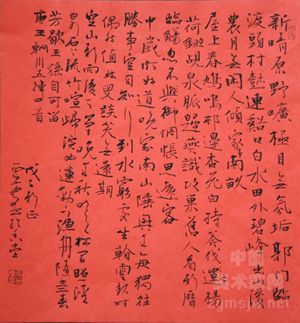 新晴原野曠極目無氛垢郭門臨
渡頭村樹連谿口白水田外碧峰出山後
農月無閑人傾家事南畝
屋上春鳩鳴邨邊杏花白持斧伐遠揚
荷鋤覘泉脈歸燕識故巢舊人看新曆
臨觴忽不御惆悵思遠客
中歲頗好道晚家南山陲興來每獨往
勝事空自知行到水窮處坐看雲起時
偶然值林叟談笑無還期
空山新雨後天氣晚來秋明月松間照清
泉石上流竹喧歸浣女蓮動下漁舟隨意春
芳歇王孫自可留
王輞川五律四首